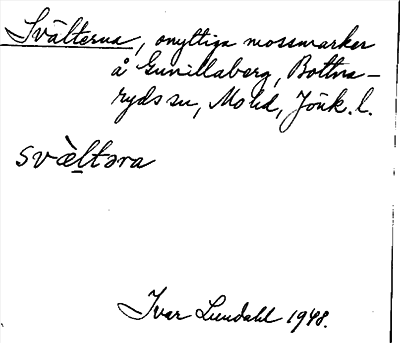 Svälterna, onyttiga mossmarker
å Gunillaberg, Bottna-
ryds sn, Mo hd, Jönk. l.
svèltəra
Ivar Lundahl 1948.